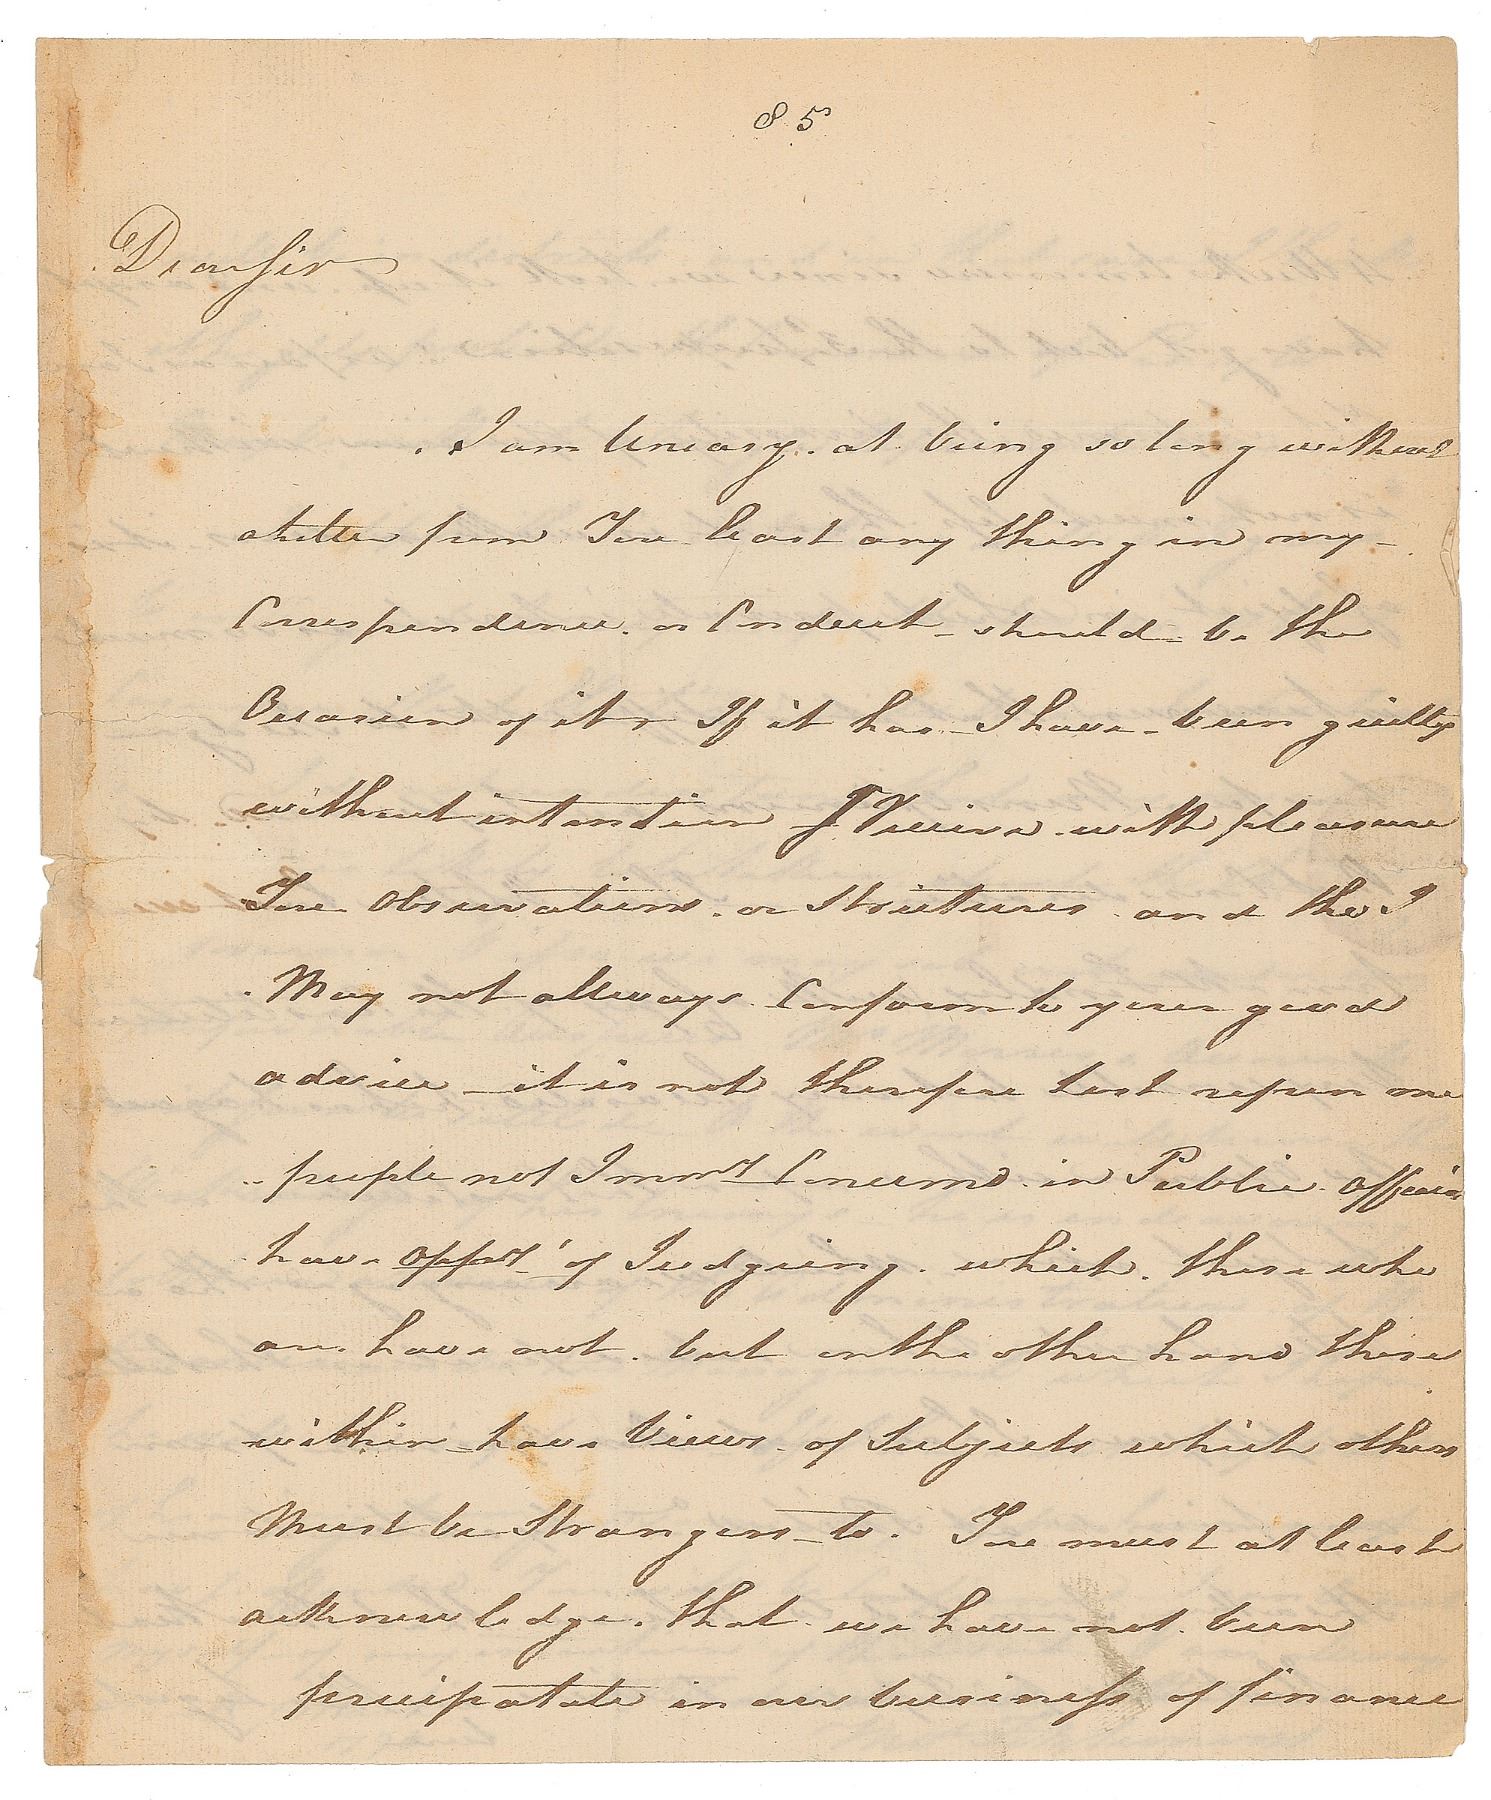 85
Dear Sir
I am Uneasy. at being so long without
a letter from You least any thing in my
Correspondence. or Conduct should be the
Occasion of it. If it has I have been guilty
without intention I Receive with pleasure
Your Observations. or Strictures and tho I
May not allways Conform to your good
advice it is not therefore lost upon me
people not Imm.y Concernd in Public affairs
have oppy of Judgeing. which. those who
are. have not. but on the other hand those
within have Views of Subjects which others
Must be Strangers to. You must at least
acknowledge. that we have not been
precipatate in our business of finance